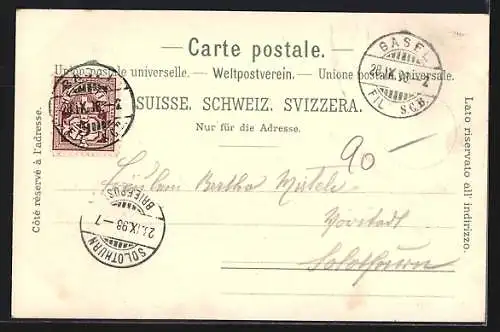 Carte postale.
Union postale universelle. — Weltpostverein. — Unione postale universale.
SUISSE. SCHWEIZ. SVIZZERA.
Nur für die Adresse.
Côté réservé à l'adresse.
Lato riservato all' indirizzo.
BASEL
FIL. S.C.B.
90-
Fräulein Bertha Misteli
Vorstadt
Solothurn
SOLOTHURN
29.IX.98-7
BRIEFPOST